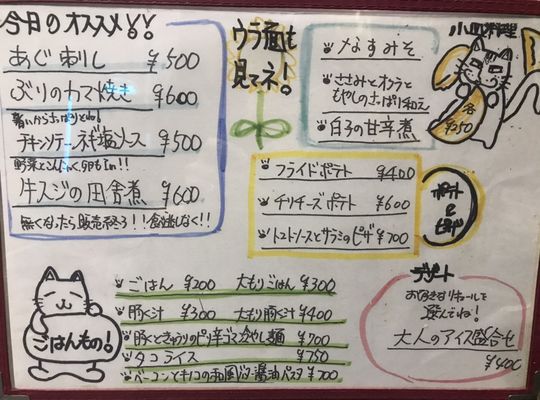 今日のオススメ!!
あじ刺し ¥500
ぶりのカマ焼き ¥600
暑いからさっぱりとね!
チキンソテーネギ塩ソース ¥500
野菜とこんにゃく、卵も in!!
牛スジの田舎煮 ¥600
無くなったら販売終了!!食逃しなく!!
ウラ面も
見てネ!
小皿料理
なすみそ
ささみとオクラと
もやしのさっぱり和え
白子の甘辛煮
各
¥250
フライドポテト ¥400
チリチーズポテト ¥600
トマトソースとサラミのピザ ¥700
ポテト
&
ピザ
ごはんもの!
ごはん ¥200 大もりごはん ¥300
豚汁 ¥300 大もり豚汁 ¥400
豚ときゅうりのピリ辛ゴマ冷やし麺 ¥700
タコライス ¥750
ベーコンとキノコの和風バター醤油パスタ ¥700
デザート
お好きなリキュールを
選んでね!
大人のアイス盛合せ
¥400